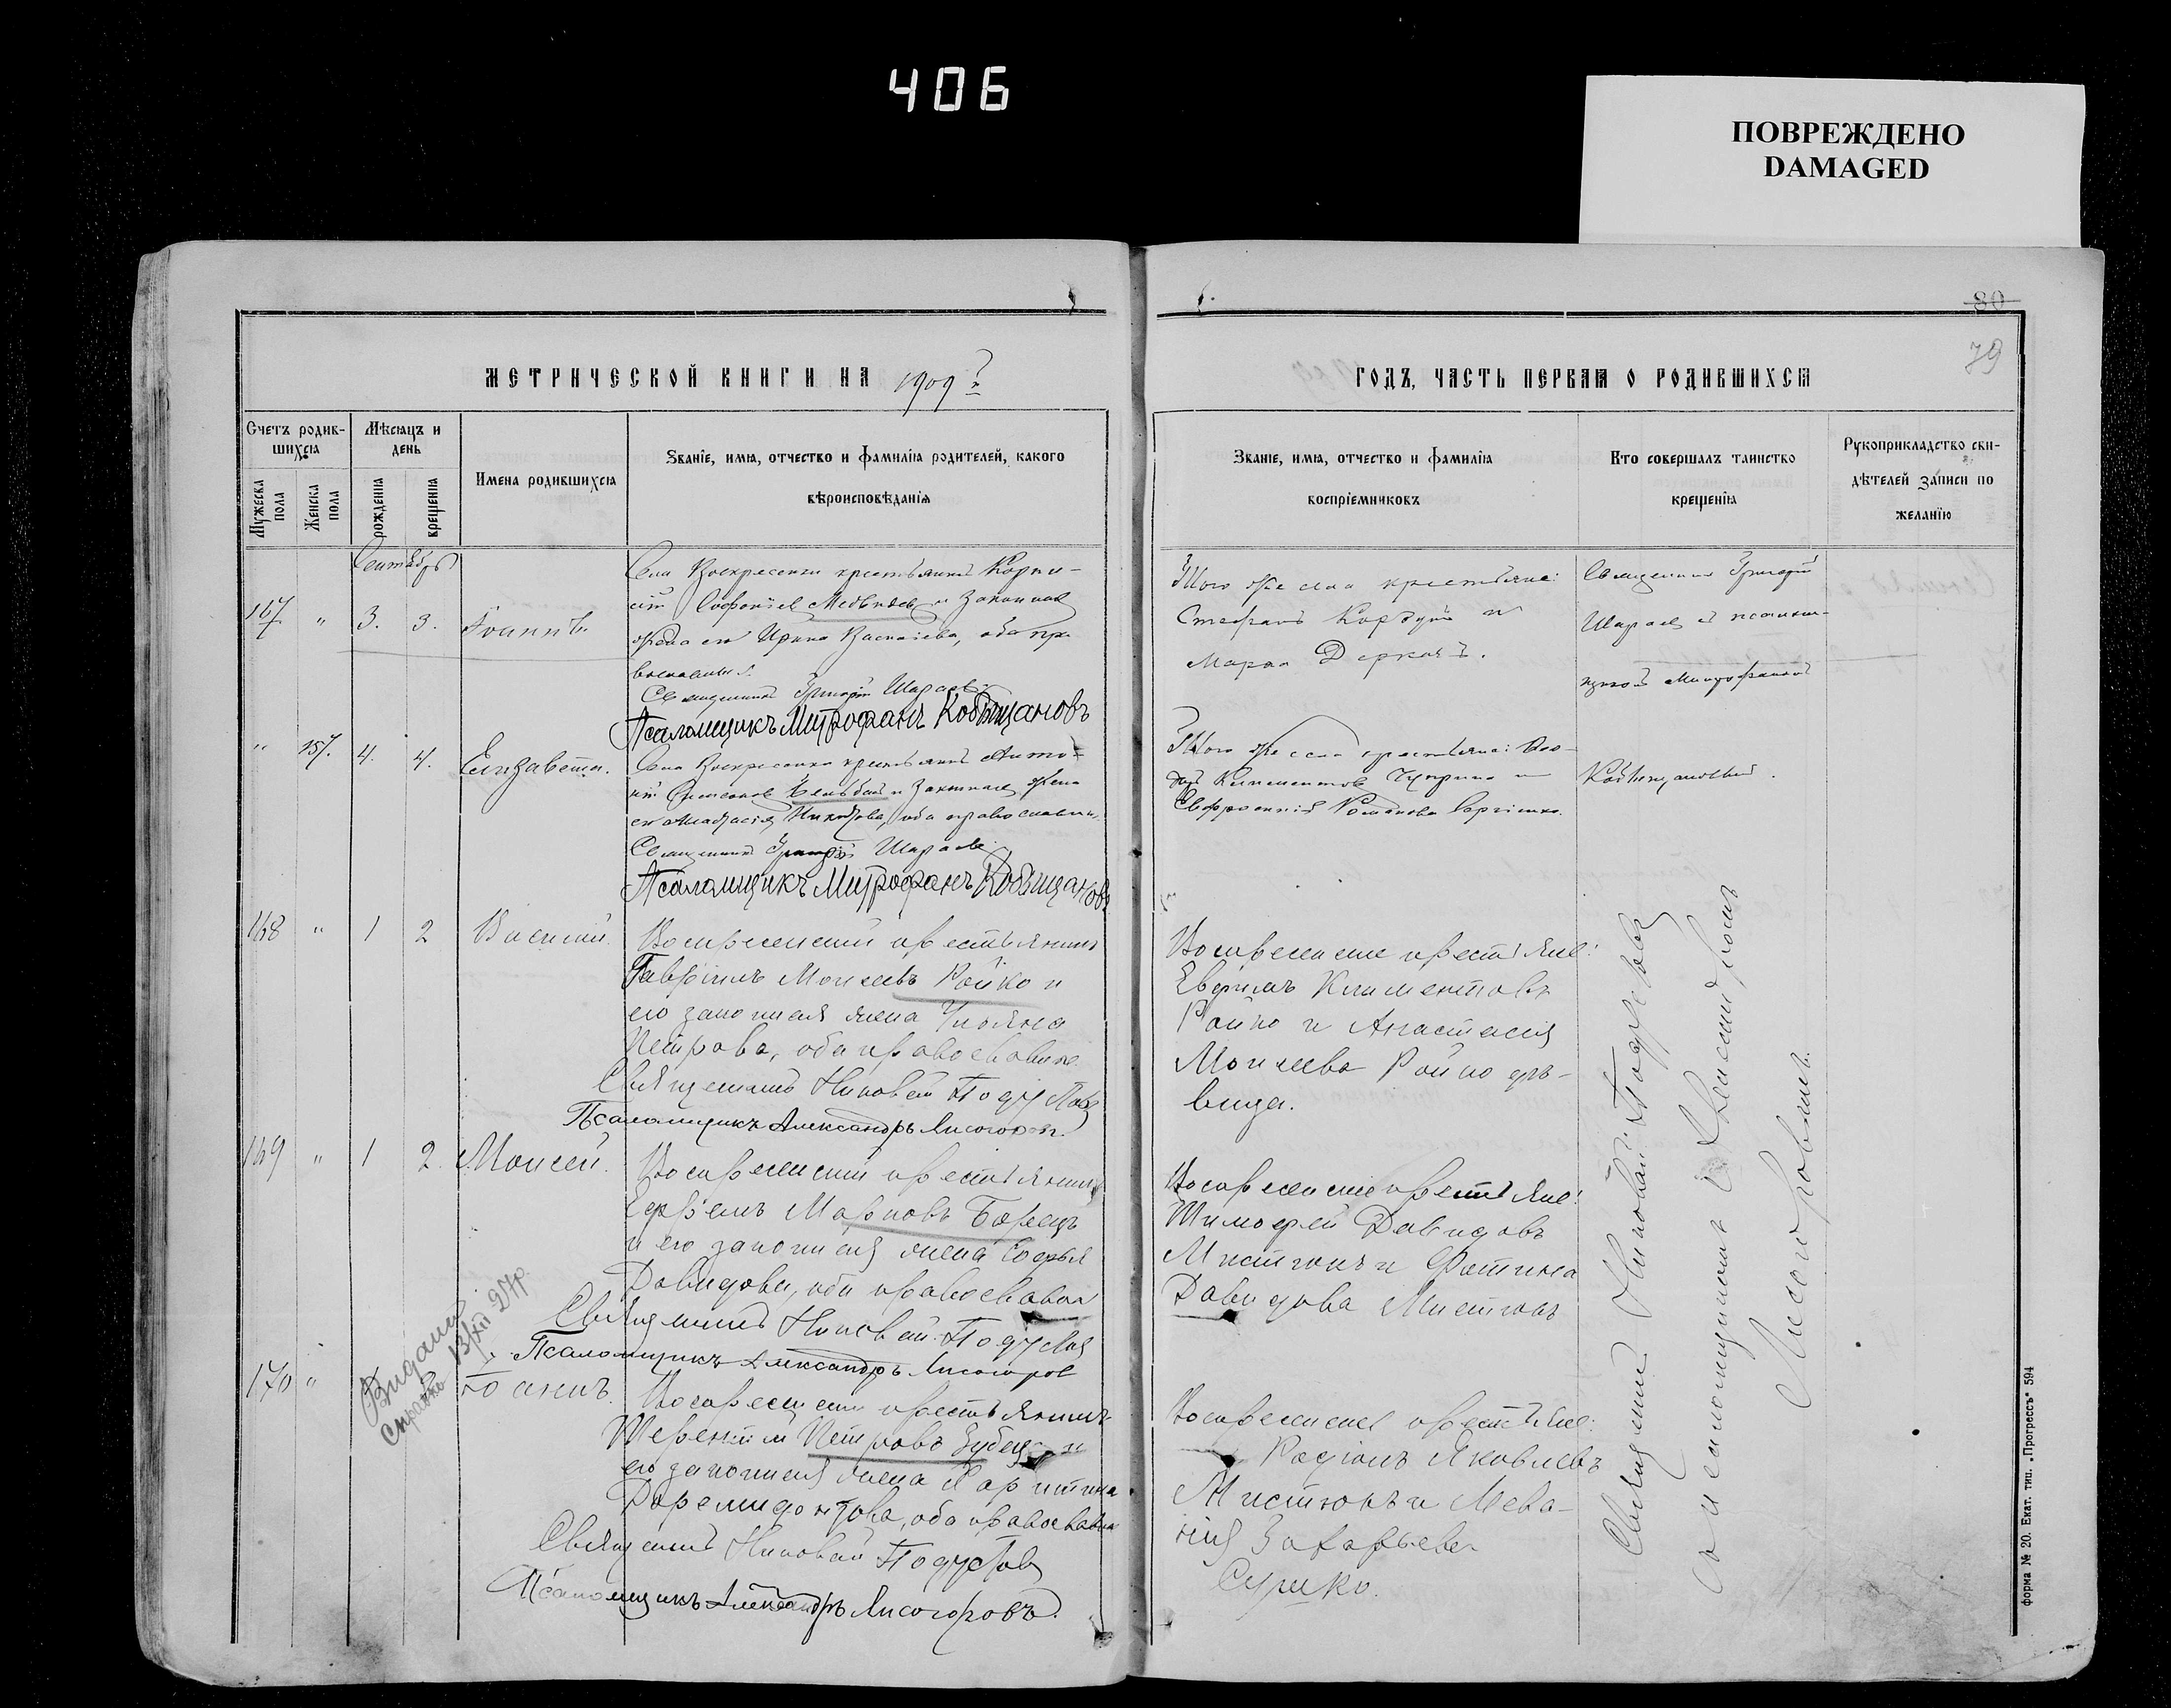 406
ПОВРЕЖДЕНО
DAMAGED
80
79
МЕТРИЧЕСКОЙ КНИГИ НА 1909 г.
ГОДЪ, ЧАСТЬ ПЕРВАЯ О РОДИВШИХСЯ
Счетъ родившихся
Мужеска пола
Женска пола
Мѣсяцъ и день
рожденія
крещенія
Имена родившихся
Званіе, имя, отчество и фамилія родителей, какого
вѣроисповѣданія
Званіе, имя, отчество и фамилія
воспріемниковъ
Кто совершалъ таинство
крещенія
Рукоприкладство сви-
дѣтелей записи по
желанію
Сентябрь
167 " 3. 3. Іоаннъ.
Села Воскресенки крестьянинъ Корни-
лій Софоніев Медвѣдев и законная
жена его Ирина Васильева, оба пра-
вославные.
Священникъ Григорій Шараевъ
Псаломщикъ Митрофанъ Кобищановъ
Того же села крестьяне:
Стефанъ Кордунъ и
Марія Деркачъ.
Священникъ Григорій
Шараев с псалом-
щикомъ Митрофаномъ
" 157. 4. 4. Елизавета.
Села Воскресенки крестьянинъ Анто-
ній Симеонов и законная жена
его Анастасія Никитова, оба православные.
Священникъ Григорій Шараев.
Псаломщикъ Митрофанъ Кобищановъ
Того же села крестьяне:
Климентов Чуприна и
Евфросинія Романова
Кобищановым.
168 " 1 2 Василій.
Воскресенскій крестьянинъ
Гавріилъ Моисеевъ Ройко и
его законная жена Ульяна
Петрова, оба православные.
Священникъ Николай Подустов
Псаломщикъ Александръ Лисогоров.
Воскресенские крестьяне:
Евфимъ Климентовъ
Ройко и Анастасія
Моисеева Ройко дѣ-
вица.
169 " 1 2 Моисей.
Воскресенскій крестьянинъ
Ефремъ Марковъ Борецъ
и его законная жена Софья
Давидова, оба православные
Священникъ Николай Подустов
Псаломщикъ Александръ Лисогоров
Воскресенские крестьяне:
Тимофей Давидовъ
Мистюкъ и Фотина
Давидова Мистюкъ
Видана
справка 13/XII 27р.
170 " Іоаннъ.
Воскресенскій крестьянинъ
Терентій Петровъ Зубец и
его законная жена Харитина
Дорамидонтова, оба православные
Священникъ Николай Подустов
Псаломщикъ Александръ Лисогоровъ.
Воскресенские крестьяне:
Родіонъ Яковлевъ
Мистюкъ и Мела-
нія Захарьева
Сушко.
Священникъ Николай Подустовъ
с псаломщикомъ Александромъ
Лисогоровымъ.
форма № 20. Екат. тип. „Прогрессъ" 594